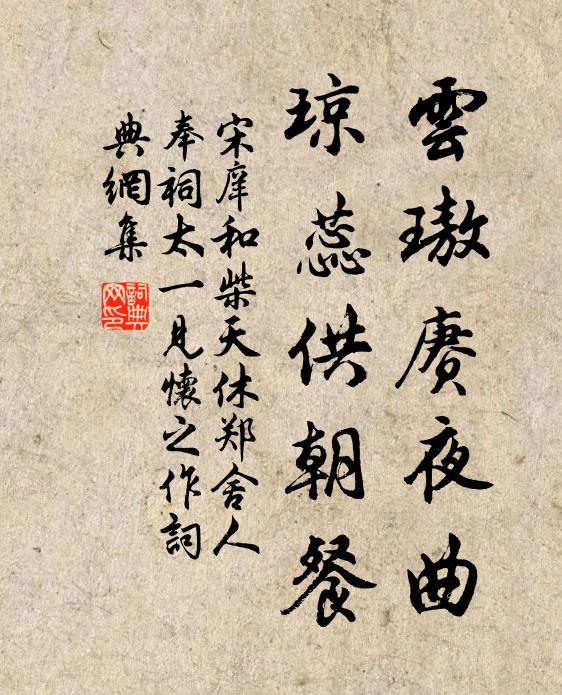 雲璈賡夜曲
琼蕊供朝餐
宋庠和柴天休郑舍人
奉祠太一見懷之作詞
典網集
詞典
网印